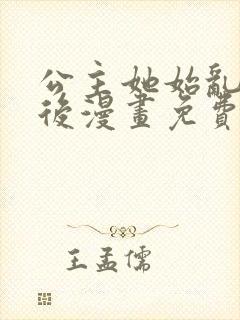 公主她始亂
後漫畫免費
王孟儒